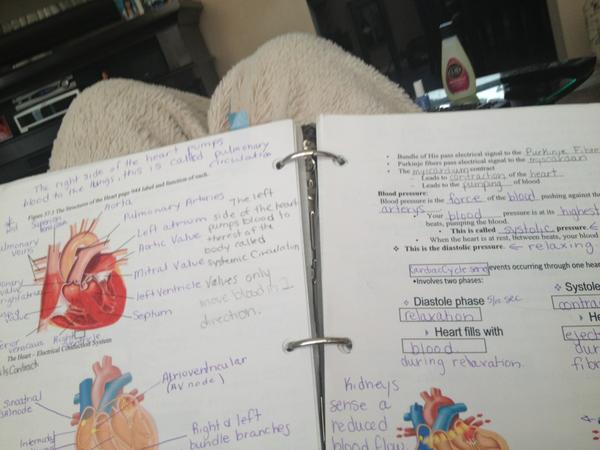 The right side of the heart pumps
blood to the lungs, this is called pulmonary
circulation
Figure 37.3 The Structures of the Heart page 944 label and function of each.
Aorta
Pulmonary Arteries
Left atrium
Aortic Valve
Mitral Valve
left Ventricle
Septum
The left
side of the heart
pumps blood to
the rest of the
body called
Systemic Circulation
Valves only
move blood in 1
direction.
Pulmonary
veins
The Heart – Electrical Conduction System
Contract
Sinoatrial
node
Atrioventricular
(AV node)
Right & left
bundle branches
• Bundle of His pass electrical signal to the Purkinje Fibe
• Purkinje fibers pass electrical signal to the myocardian
• The myocardium contract
– Leads to contraction of the heart
– Leads to the pumping of blood
Blood pressure:
Blood pressure is the force of the blood pushing against the
arterys.
• Your blood pressure is at its highest
beats, pumping the blood.
• This is called systolic pressure.
• When the heart is at rest, between beats, your blood
❖ This is the diastolic pressure. ← relaxing
Cardiac Cycle events occurring through one hear
•Involves two phases:
❖ Diastole phase
relaxation
› Heart fills with
blood
during relaxation.
❖ Systole
contra
› Hear
eject
duri
fibr
Kidneys
sense a
reduced
blood flow